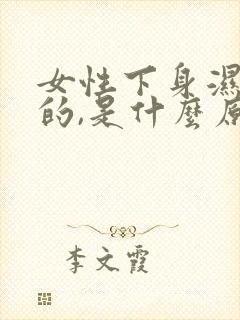 女性下身濕
的,是什麼原
李文霞